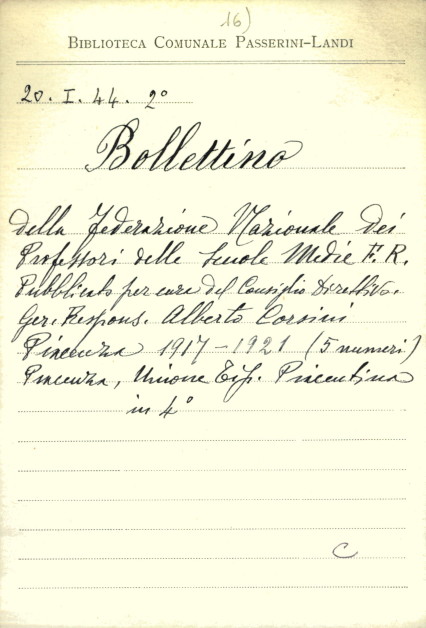 16)
BIBLIOTECA COMUNALE PASSERINI-LANDI
20. I. 44. 2°
Bollettino
della Federazione Nazionale dei
Professori delle Scuole Medie F. R.
Pubblicato per cura del Consiglio Direttivo.
Ger. Respons. Alberto Corsini
Piacenza 1917-1921 (5 numeri)
Piacenza, Unione Tip. Piacentina
in 4°
C